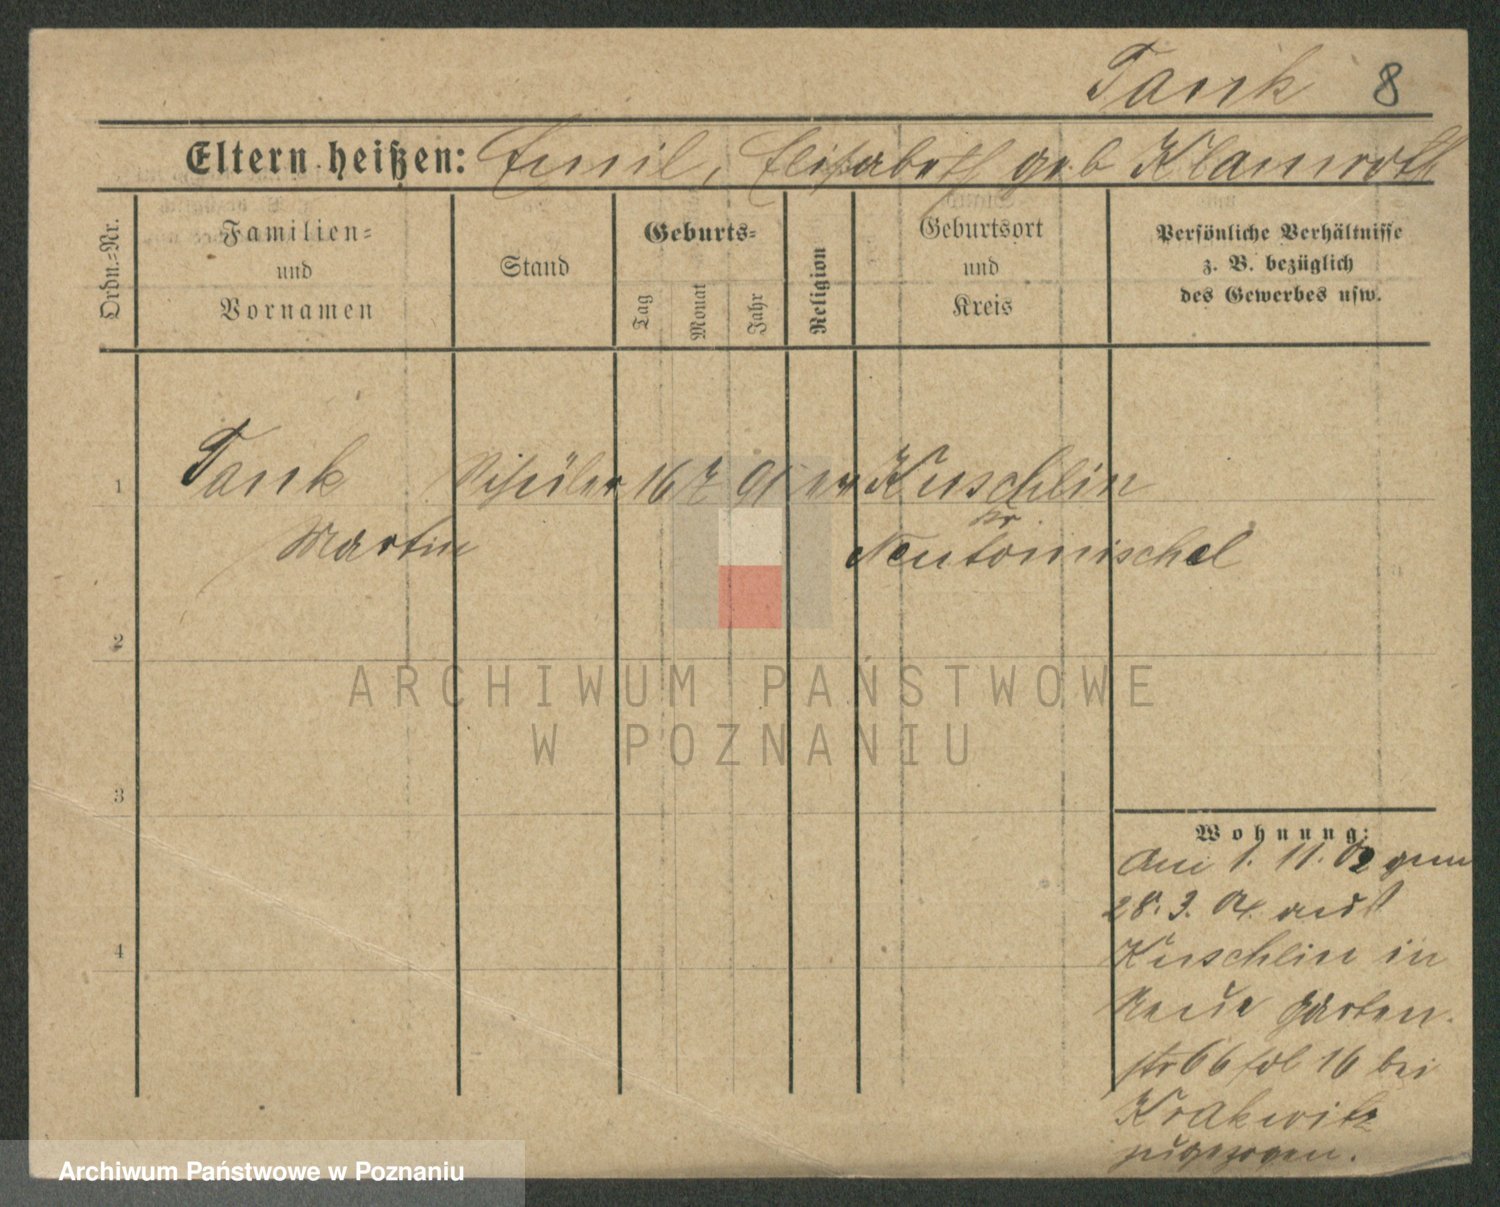 Tank 8
Eltern heißen: Emil, Elisabeth geb Klamroth
Ordn.=Nr.
Familien=
und
Vornamen
Stand
Geburts=
Tag
Monat
Jahr
Religion
Geburtsort
und
Kreis
Persönliche Verhältnisse
z. B. bezüglich
des Gewerbes usw.
1 Tank Schüler 16 7 91 ev Kuschlin
Kr
Martin Neutomischel
2
ARCHIWUM PAŃSTWOWE
W POZNANIU
3
Wohnung:
Am 1. 11. 02 gem
28. 3. 04 aus
Kuschlin in
Neue Garten-
str 66 fol 16 bei
Krakwitz
zugezogen.
4
Archiwum Państwowe w Poznaniu